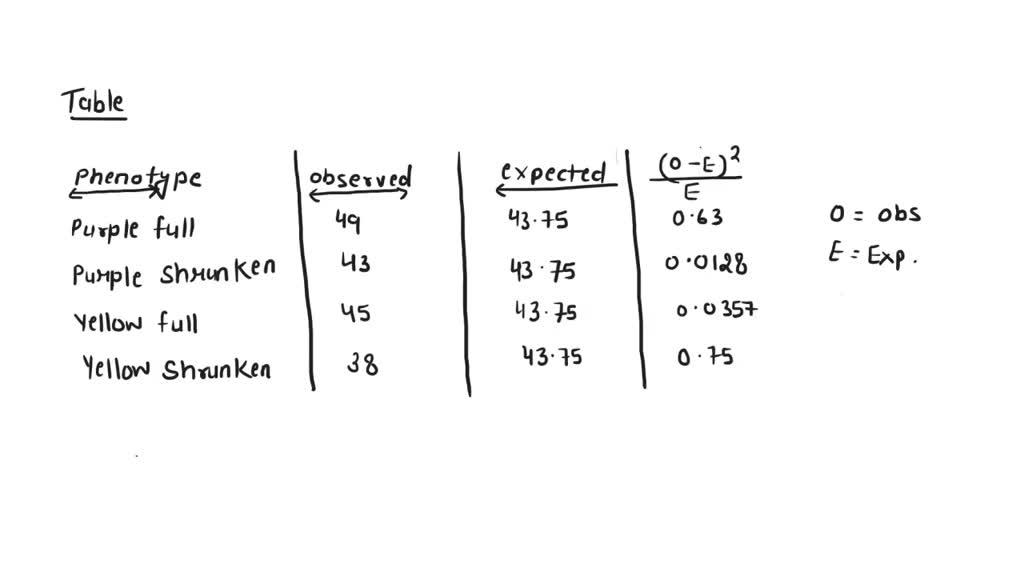 Table
Phenotype observed expected (O-E)²/E
Purple full 49 43.75 0.63 O = obs
Purple Shrunken 43 43.75 0.0128 E = Exp.
Yellow full 45 43.75 0.0357
Yellow Shrunken 38 43.75 0.75